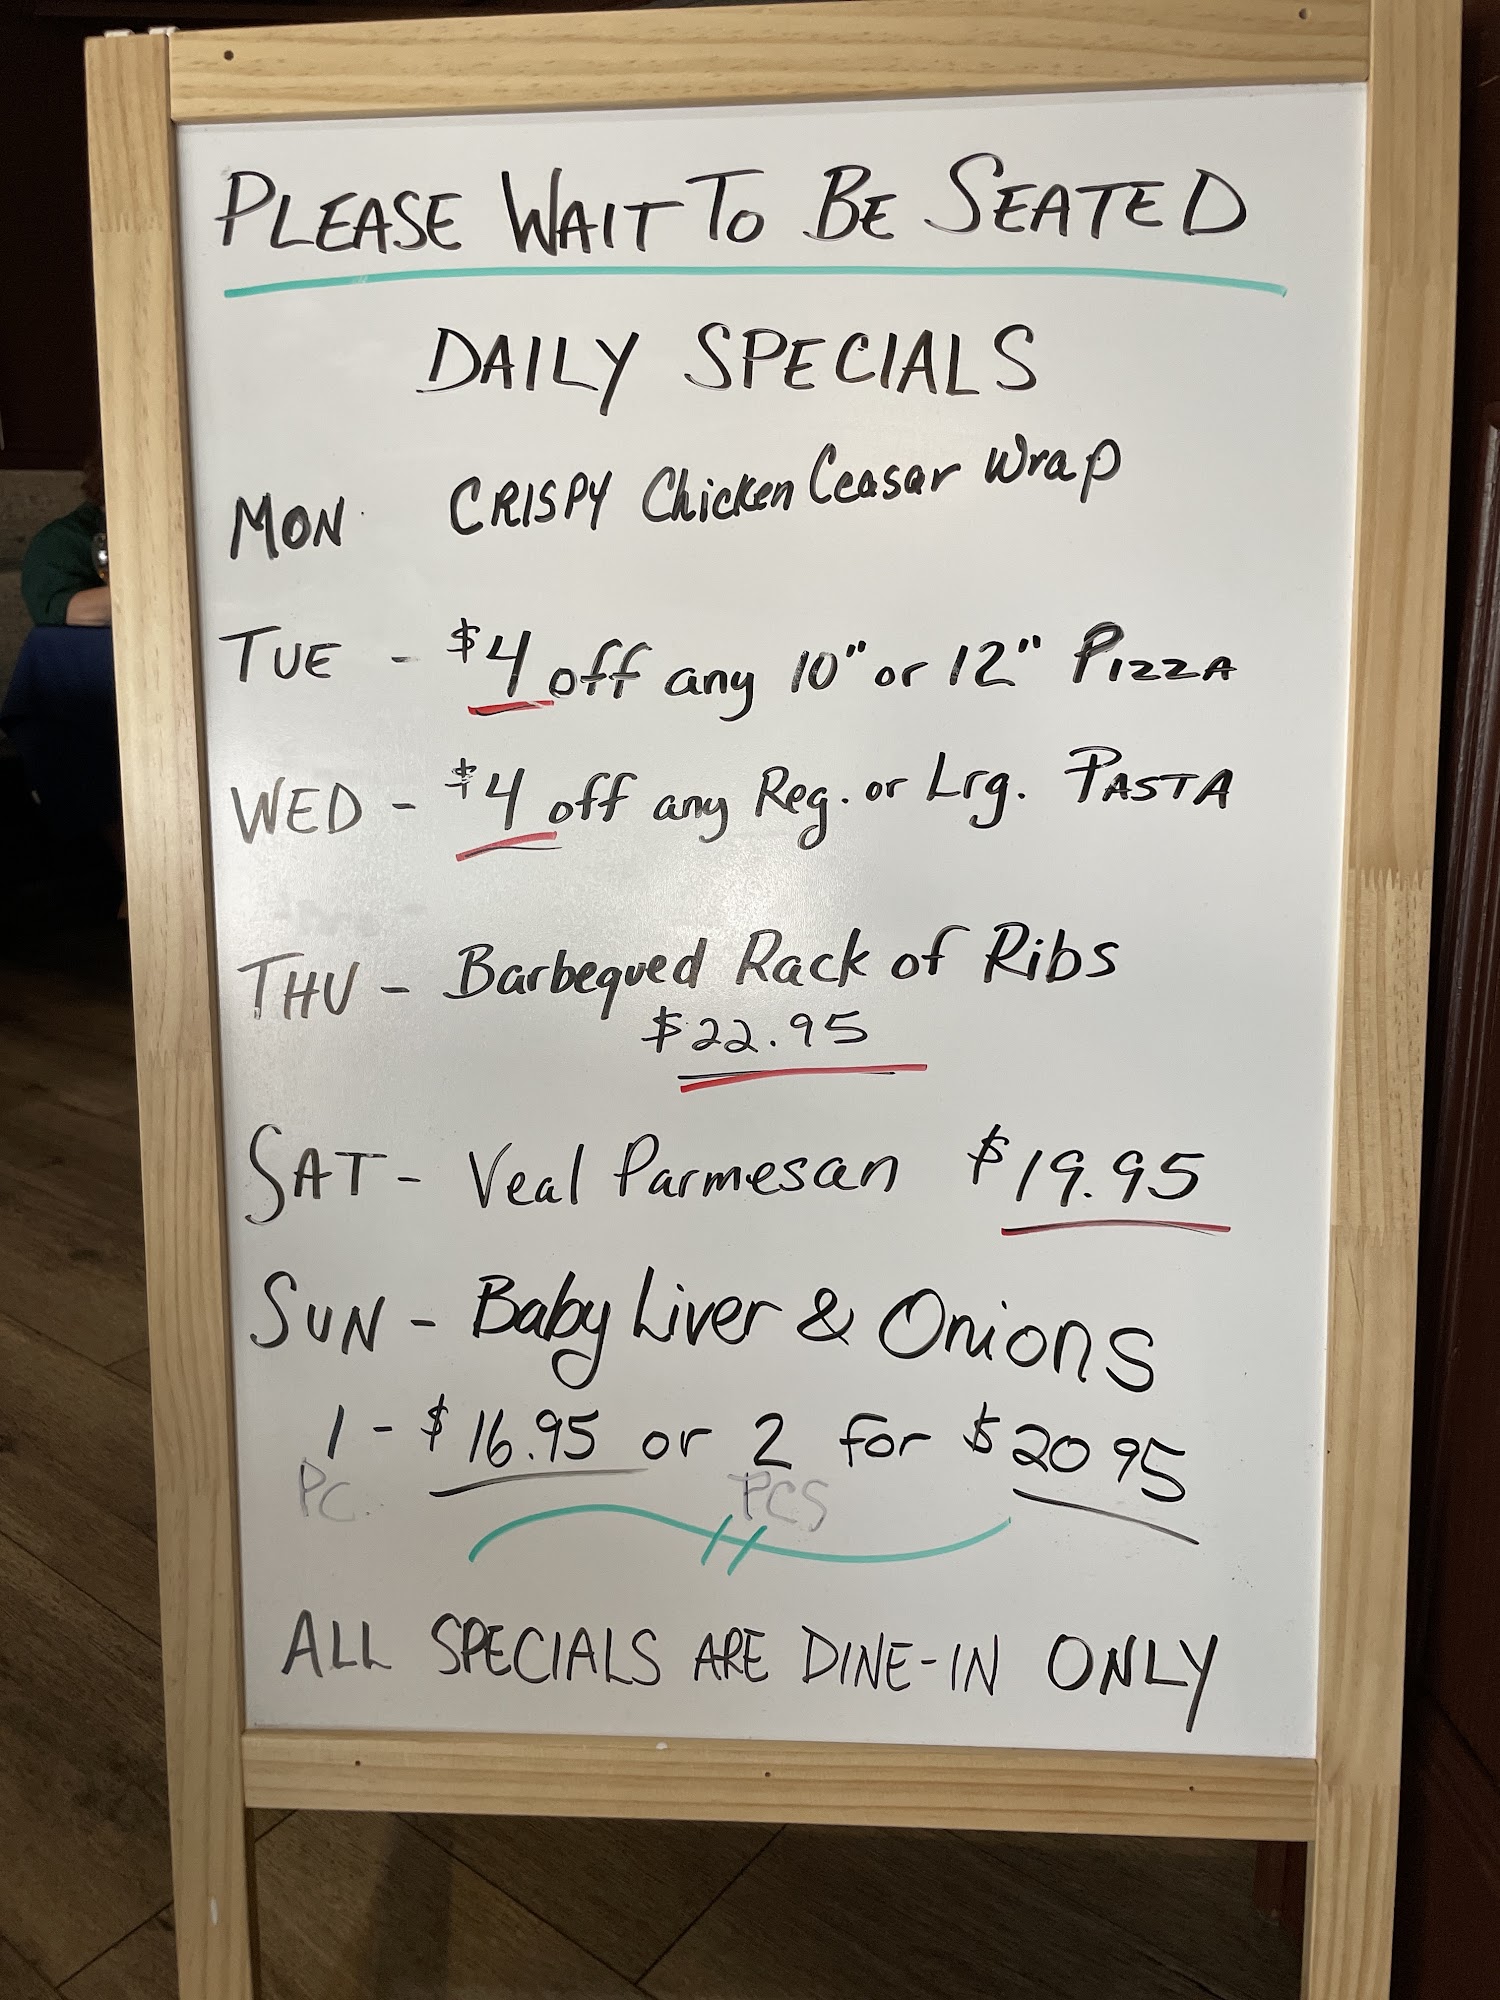 PLEASE WAIT TO BE SEATED
DAILY SPECIALS
MON CRISPY Chicken Ceasar Wrap
TUE - $4 off any 10" or 12" PIZZA
WED - $4 off any Reg. or Lrg. PASTA
THU - Barbequed Rack of Ribs
$22.95
SAT - Veal Parmesan $19.95
SUN - Baby Liver & Onions
1 - $16.95 or 2 for $20 95
PC. PCS
ALL SPECIALS ARE DINE-IN ONLY